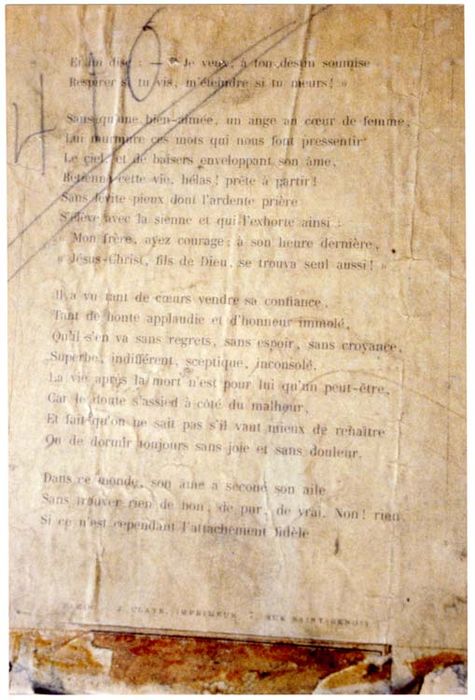 416
Et lui dise : — « Je veux, à ton destin soumise
Respirer si tu vis, m'éteindre si tu meurs! »
Sans qu'une bien-aimée, un ange au cœur de femme,
Lui murmure ces mots qui nous font pressentir
Le ciel, et de baisers enveloppant son âme,
Retienne cette vie, hélas! prête à partir!
Sans lévite pieux dont l'ardente prière
S'élève avec la sienne et qui l'exhorte ainsi :
« Mon frère, ayez courage; à son heure dernière,
« Jésus-Christ, fils de Dieu, se trouva seul aussi! »
Il a vu tant de cœurs vendre sa confiance,
Tant de honte applaudie et d'honneur immolé,
Qu'il s'en va sans regrets, sans espoir, sans croyance,
Superbe, indifférent, sceptique, inconsolé.
La vie après la mort n'est pour lui qu'un peut-être,
Car le doute s'assied à côté du malheur,
Et fait qu'on ne sait pas s'il vaut mieux de renaître
Ou de dormir toujours sans joie et sans douleur.
Dans ce monde, son âme a secoué son aile
Sans trouver rien de bon, de pur, de vrai. Non! rien,
Si ce n'est cependant l'attachement fidèle
PARIS. J. CLAYE, IMPRIMEUR, 7, RUE SAINT-BENOIT